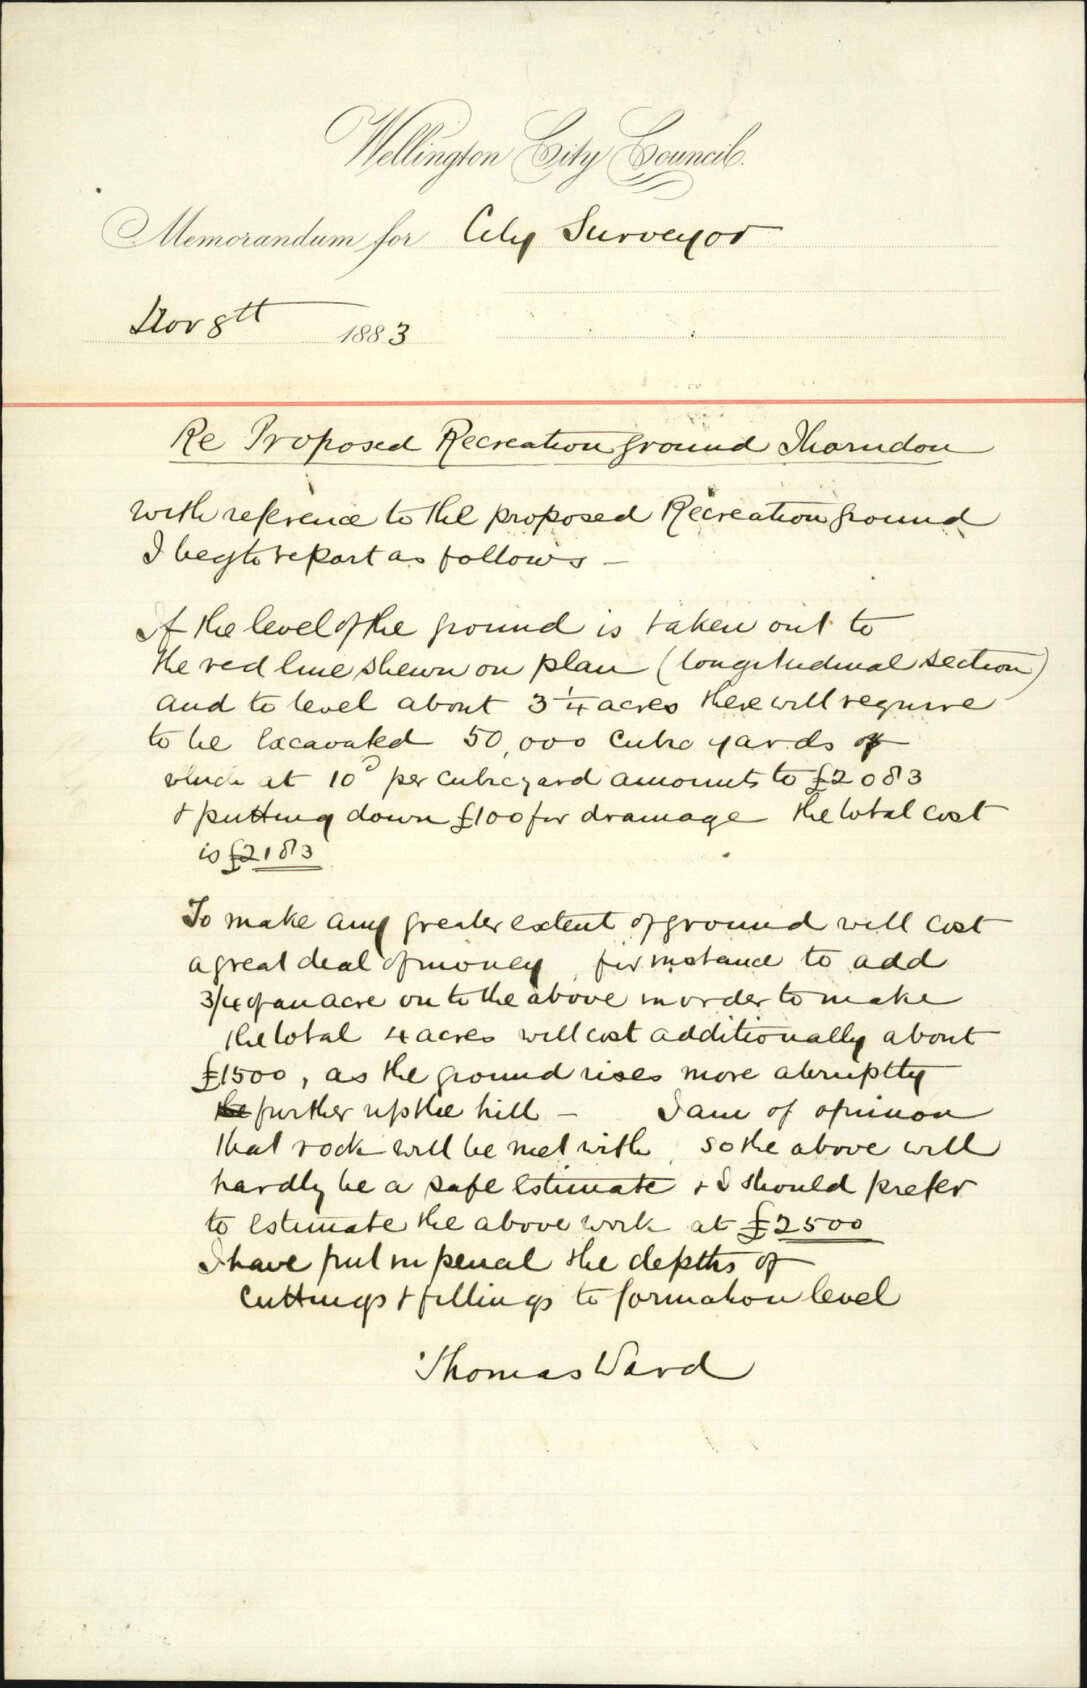 Wellington City Council.
Memorandum for City Surveyor
Nov 8th 1883
Re Proposed Recreation ground Thorndon
with reference to the proposed Recreation ground
I beg to report as follows –
If the level of the ground is taken out to
the red line shewn on plan (longitudinal section)
and to level about 3 1/4 acres there will require
to be excavated 50,000 cubic yards of
which at 10d per cubic yard amounts to £2083
& putting down £100 for drainage the total cost
is £2183
To make any greater extent of ground will cost
a great deal of money, for instance to add
3/4 of an acre on to the above in order to make
the total 4 acres will cost additionally about
£1500, as the ground rises more abruptly
the further up the hill – I am of opinion
that rock will be met with, so the above will
hardly be a safe estimate & I should prefer
to estimate the above work at £2500
I have put in pencil the depths of
cuttings & fillings to formation level
Thomas Ward